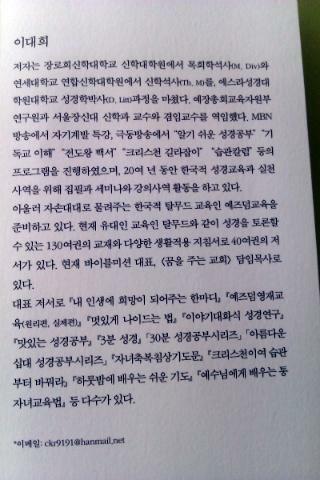 이대희
저자는 장로회신학대학교 신학대학원에서 목회학석사(M. Div)와
연세대학교 연합신학대학원에서 신학석사(Th. M)를, 에스라성경대
학원대학교 성경학박사(D. Litt)과정을 마쳤다. 예장총회교육자원부
연구원과 서울장신대 신학과 교수와 겸임교수를 역임했다. MBN
방송에서 자기계발 특강, 극동방송에서 “알기 쉬운 성경공부” “기
독교 이해” “전도왕 백서” “크리스천 길라잡이” “습관칼럼” 등의
프로그램을 진행하였으며, 20여 년 동안 한국적 성경교육과 실천
사역을 위해 집필과 세미나와 강의사역 활동을 하고 있다.
아울러 자손대대로 물려주는 한국적 탈무드 교육인 예즈덤교육을
준비하고 있다. 현재 유대인 교육인 탈무드와 같이 성경을 토론할
수 있는 130여권의 교재와 다양한 생활적용 지침서로 40여권의 저
서가 있다. 현재 바이블미션 대표, 〈꿈을 주는 교회〉 담임목사로
있다.
대표 저서로 『내 인생에 희망이 되어주는 한마디』 『예즈덤영재교
육(원리편, 실제편)』 『멋있게 나이드는 법』 『이야기대화식 성경연구』
『맛있는 성경공부』 『3분 성경』 「30분 성경공부시리즈」 「아름다운
십대 성경공부시리즈」 『자녀축복침상기도문』 『크리스천이여 습관
부터 바꿔라』 『하룻밤에 배우는 쉬운 기도』 『예수님에게 배우는 동
자녀교육법』 등 다수가 있다.
*이메일: ckr9191@hanmail.net